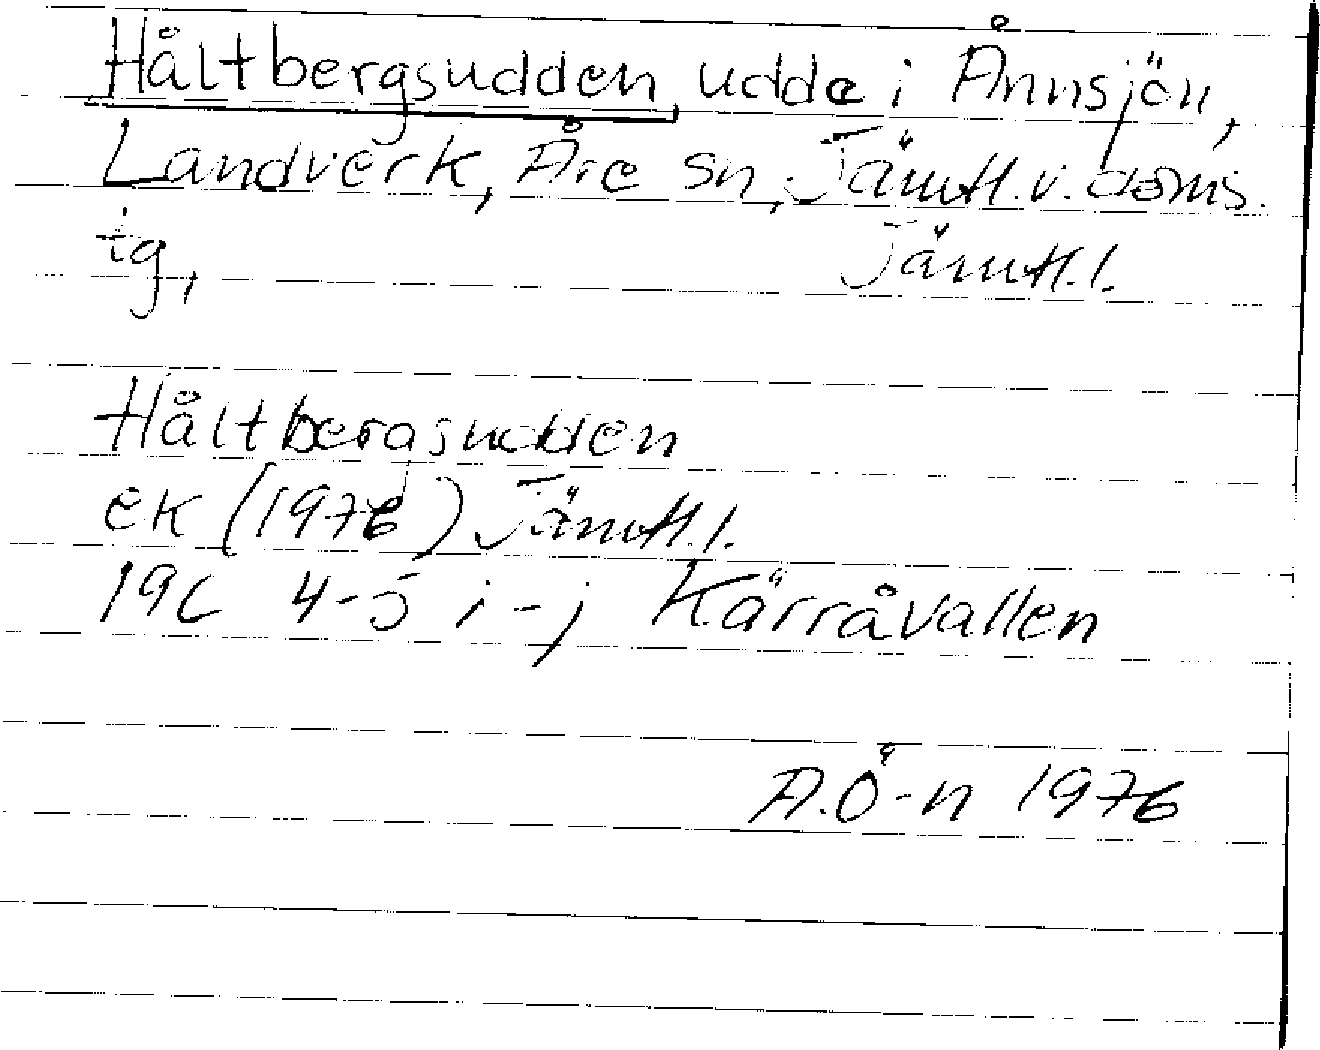 Håltbergsudden, udde i Ånnsjön,
Landverk, Åre sn, Jämtl. v. doms.
tg, Jämtl. l.
Håltbergsudden
ek (1976) Jämtl. l.
19C 4-5 i-j Kärråvallen
A.Ö-n 1976